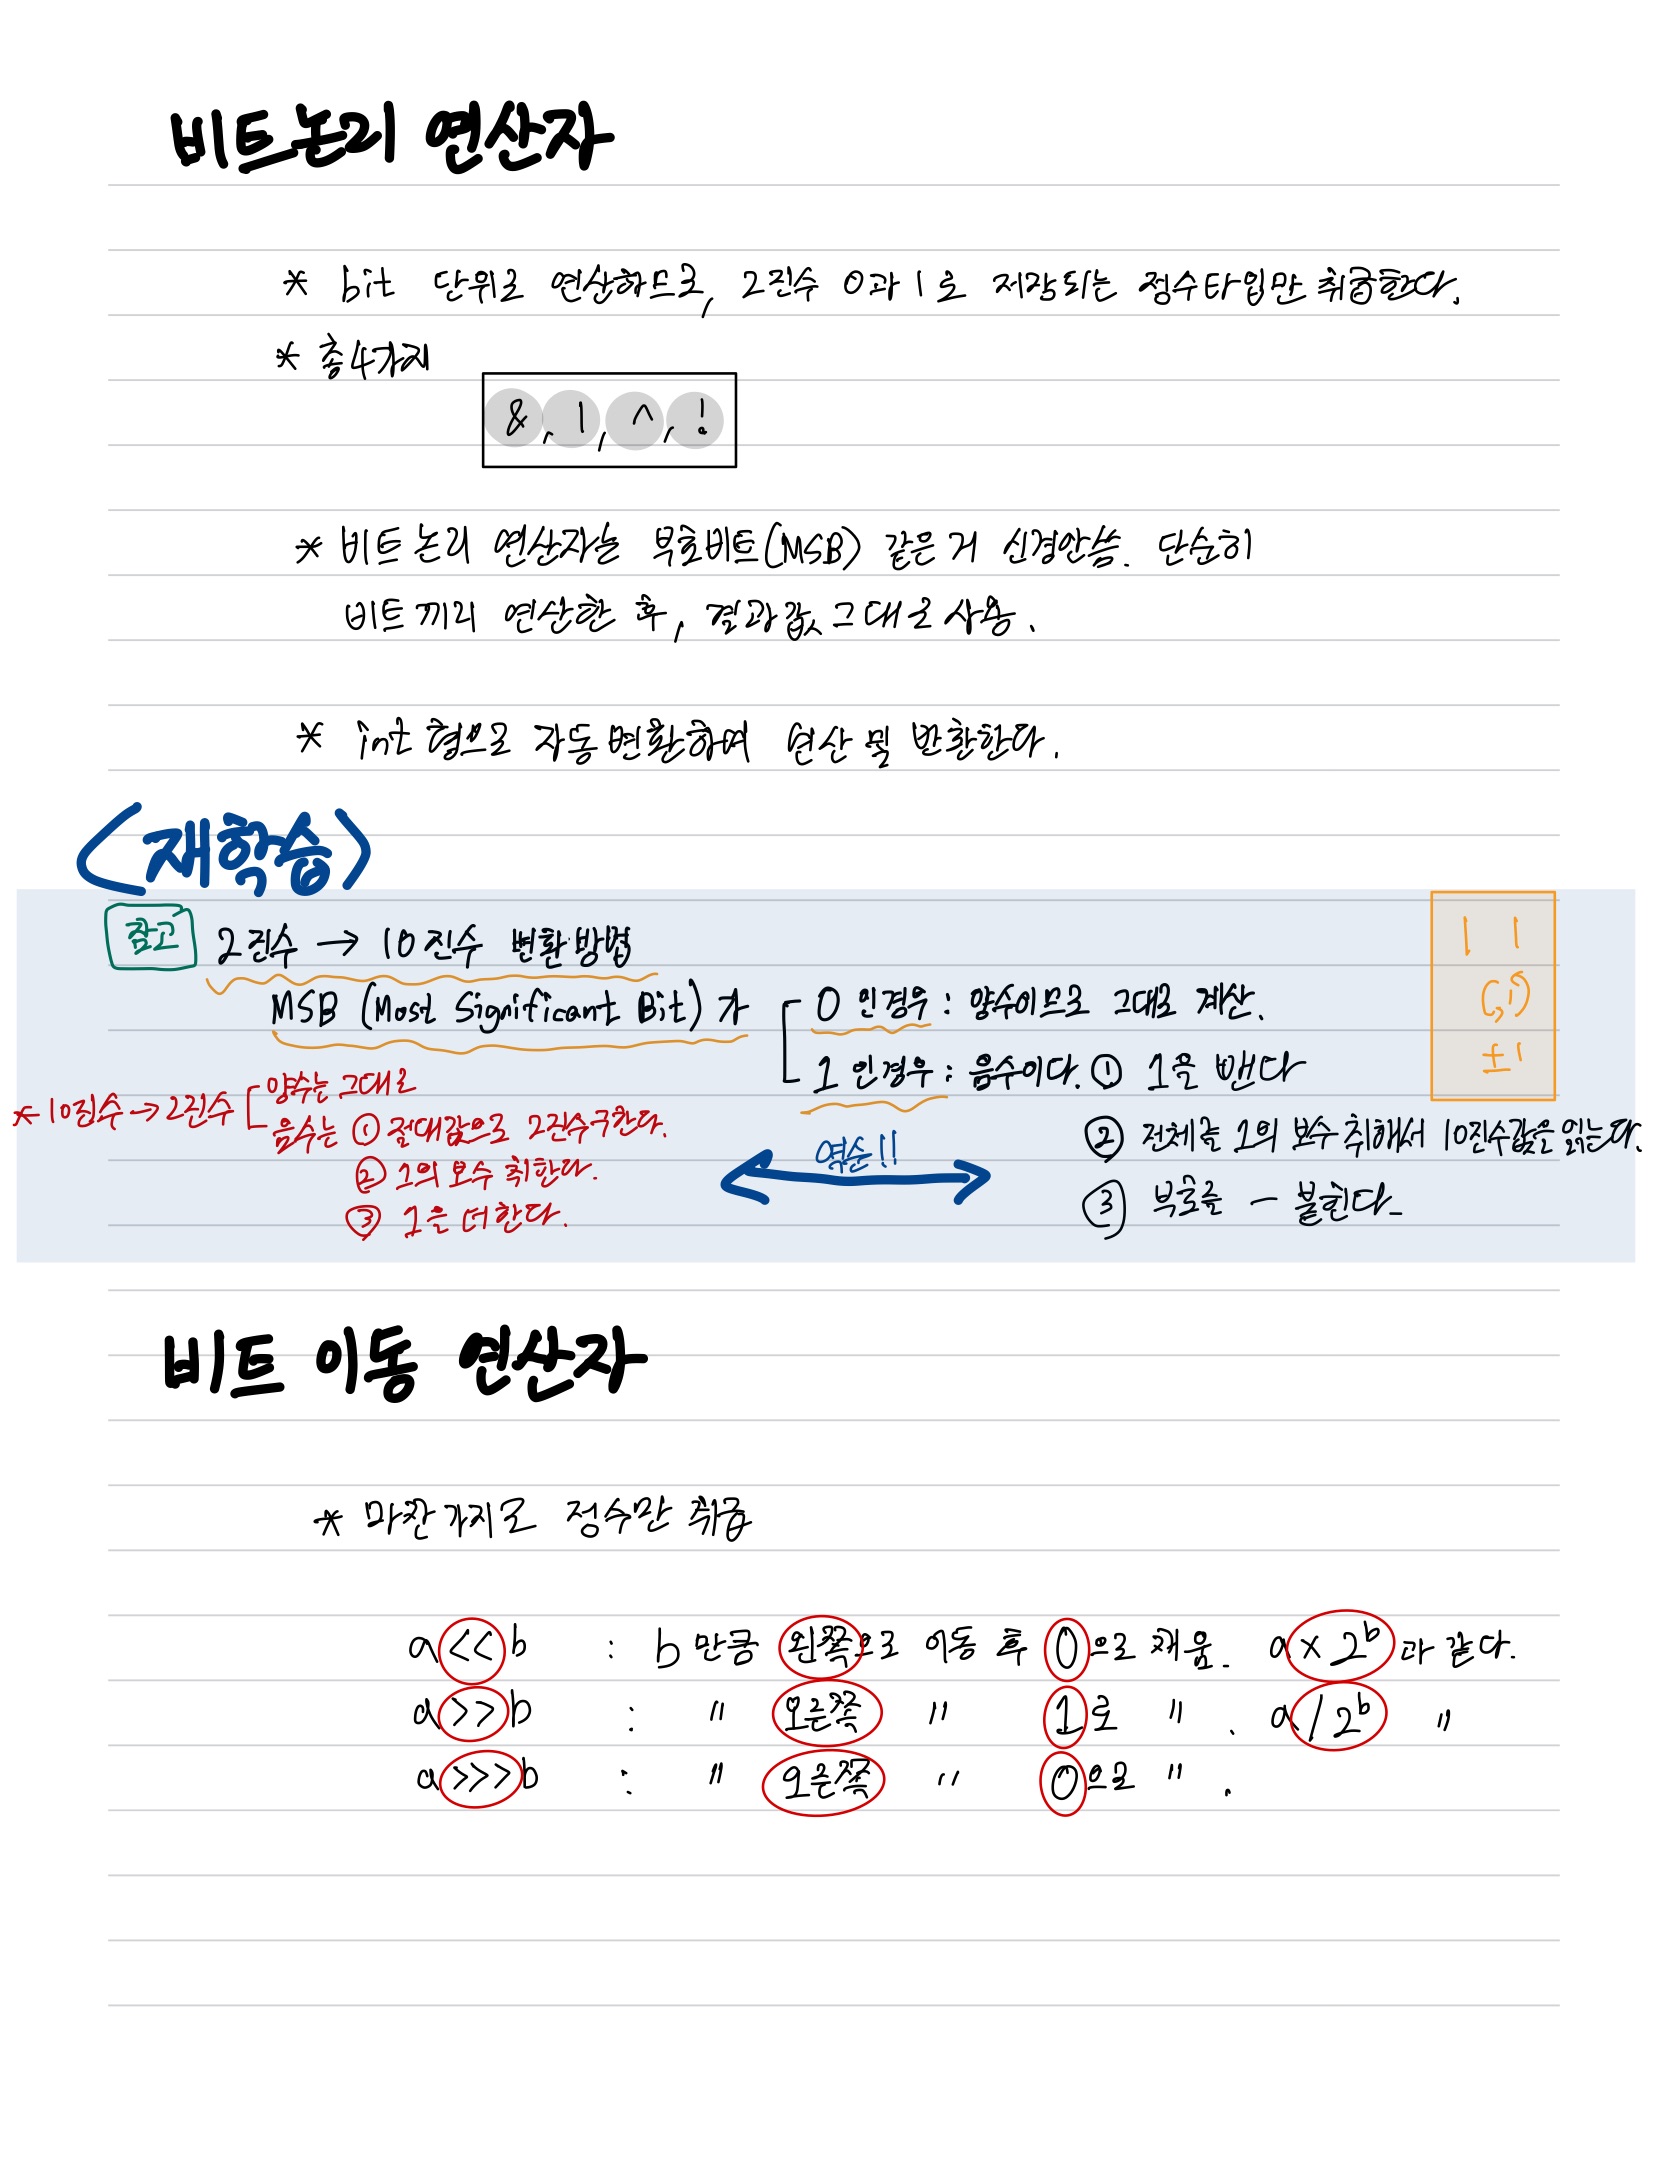 비트논리 연산자
* bit 단위로 연산하므로, 2진수 0과 1로 저장되는 정수타입만 취급한다.
* 총 4가지
&, |, ^, !
* 비트 논리 연산자는 부호비트(MSB) 같은 거 신경안씀. 단순히
비트끼리 연산한 후, 결과값 그대로 사용.
* int 형으로 자동변환하여 연산 및 반환한다.
<재학습>
참고 2진수 → 10진수 변환방법
MSB (Most Significant Bit) 가
0 인경우 : 양수이므로 그대로 계산.
1 인경우 : 음수이다. ① 1을 뺀다
② 전체를 1의 보수 취해서 10진수값을 읽는다.
③ 부호를 - 붙힌다.
1 1
±1
* 10진수 → 2진수
양수는 그대로
음수는 ① 절대값으로 2진수구한다.
② 1의 보수 취한다.
③ 1을 더한다.
역순!!
비트 이동 연산자
* 마찬가지로 정수만 취급
a << b : b 만큼 왼쪽으로 이동 후 0으로 채움. a × 2ᵇ 과 같다.
a >> b : " 오른쪽 " 1로 " . a / 2ᵇ "
a >>> b : " 오른쪽 " 0으로 " .